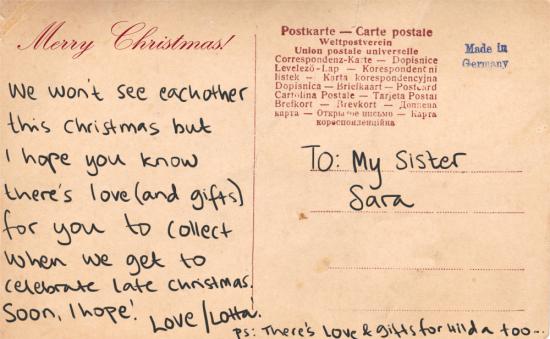 Merry Christmas!
We won't see eachother
this Christmas but
I hope you know
there's love (and gifts)
for you to collect
when we get to
celebrate late christmas.
Soon, I hope!
Love / Lotta.
Postkarte — Carte postale
Weltpostverein
Union postale universelle
Correspondenz-Karte — Dopisnice
Levelező-Lap — Korespondentni
listek — Karta korespondencyjna
Dopisnica — Briefkaart — Postcard
Cartolina Postale — Tarjeta Postal
Brefkort — Brevkort — Дописна
карта — Открытое письмо — Карта
кореспонденційна
Made in
Germany
TO: My Sister
Sara
PS: There's Love & gifts for Hilda too...